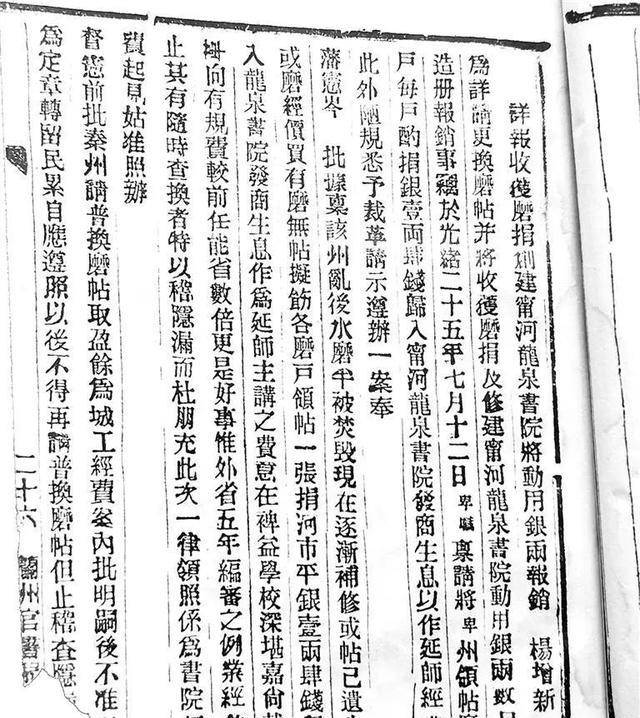 詳報收獲磨捐剏建甯河龍泉書院將動用銀兩報銷 楊增新
爲詳請更換磨帖并將收獲磨捐及修建甯河龍泉書院動用銀兩數
造册報銷事竊於光緒二十五年七月十二日卑職稟請將卑州領帖
戶每戶酌捐銀壹兩肆錢歸入甯河龍泉書院發商生息以作延師經
此外陋規悉予裁革請示遵辦一案奉
藩憲岑 批據稟該州亂後水磨半被焚毀現在逐漸補修或帖已遺
或磨經價買有磨無帖擬飭各磨戶領帖一張捐河市平銀壹兩肆錢
入龍泉書院發商生息作爲延師主講之費意在裨益學校深堪嘉尚
尚有規費較前任能省數倍更是好事惟外省五年編審之例業經
止其有隨時查換者特以稽隱漏而杜朋充此次一律領照係爲書院
費起見姑准照辦
督憲前批秦州請普換磨帖取盈餘爲城工經費案內批明嗣後不准
爲定章轉留民累自應遵照以後不得再請普換磨帖但止稽查隱
二十六 蘭州官書